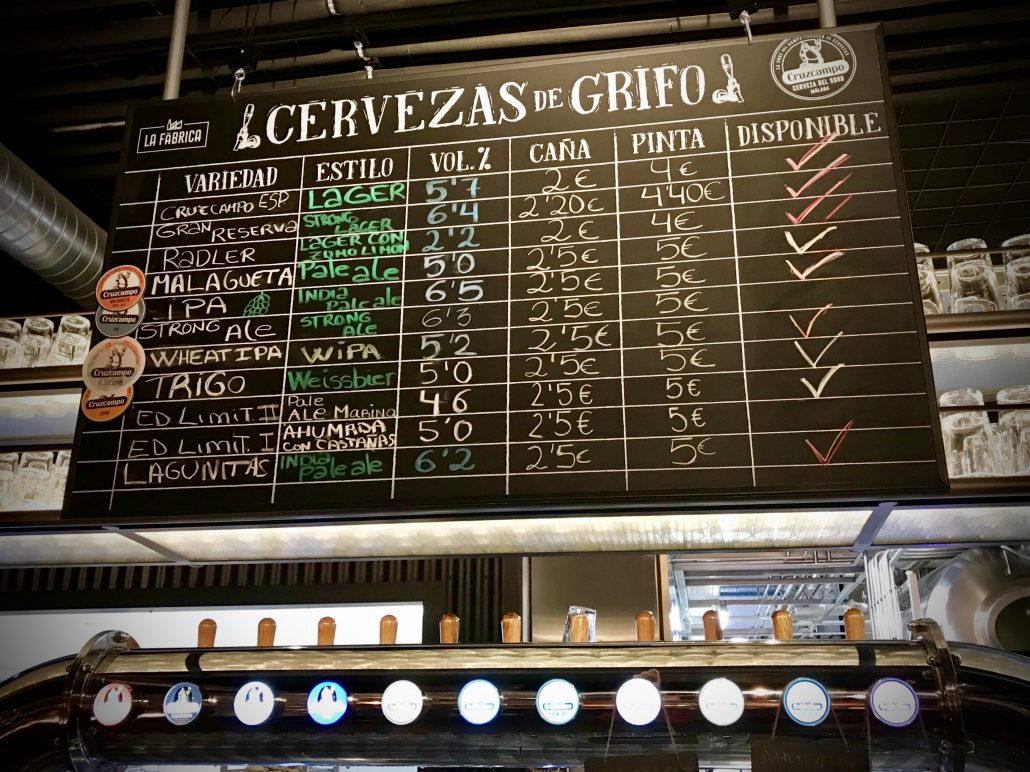 LA FÁBRICA
CERVEZAS DE GRIFO
Cruzcampo
CERVEZA DEL SOHO
MÁLAGA
VARIEDAD ESTILO VOL.% CAÑA PINTA DISPONIBLE
CRUZCAMPO ESP LAGER 5'7 2€ 4€
GRAN RESERVA STRONG LAGER 6'4 2'20€ 4'40€
RADLER LAGER CON ZUMO LIMON 2'2 2€ 4€
MALAGUETA Pale ale 5'0 2'5€ 5€
IPA INDIA Pale ale 6'5 2'5€ 5€
STRONG Ale STRONG Ale 6'3 2'5€ 5€
WHEAT IPA WIPA 5'2 2'5€ 5€
TRIGO Weissbier 5'0 2'5€ 5€
ED LIMIT. II Pale Ale Marino 4'6 2'5€ 5€
ED LIMIT. I AHUMADA CON CASTAÑAS 5'0 2'5€ 5€
LAGUNITAS INDIA Pale ale 6'2 2'5€ 5€
Cruzcampo
Cruzcampo
Cruzcampo
Cruzcampo